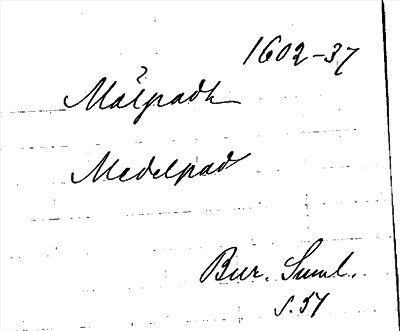 1602-37
Målpadh
Medelpad
Bur. Suml.
s. 51